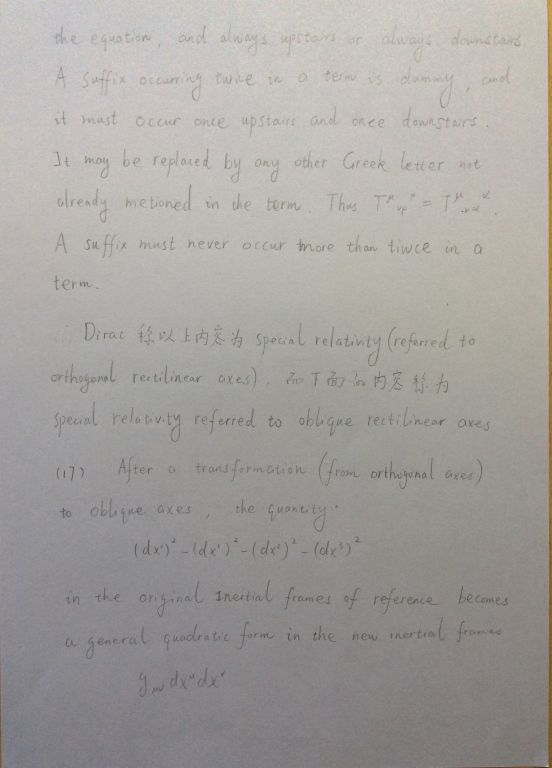 the equation, and always upstairs or always downstairs
A suffix occurring twice in a term is dummy, and
it must occur once upstairs and once downstairs.
It may be replaced by any other Greek letter not
already metioned in the term. Thus
A suffix must never occur more than tiwce in a
term.
Dirac 称以上内容为 special relativity (referred to
orthogonal rectilinear axes), 而下面的内容称为
special relativity referred to oblique rectilinear axes
(17) After a transformation (from orthogonal axes)
to oblique axes, the quantity.
(dx⁰)² - (dx¹)² - (dx²)² - (dx³)²
in the original Inertial frames of reference becomes
a general quadratic form in the new inertial frames
g_μν dx^μ dx^ν